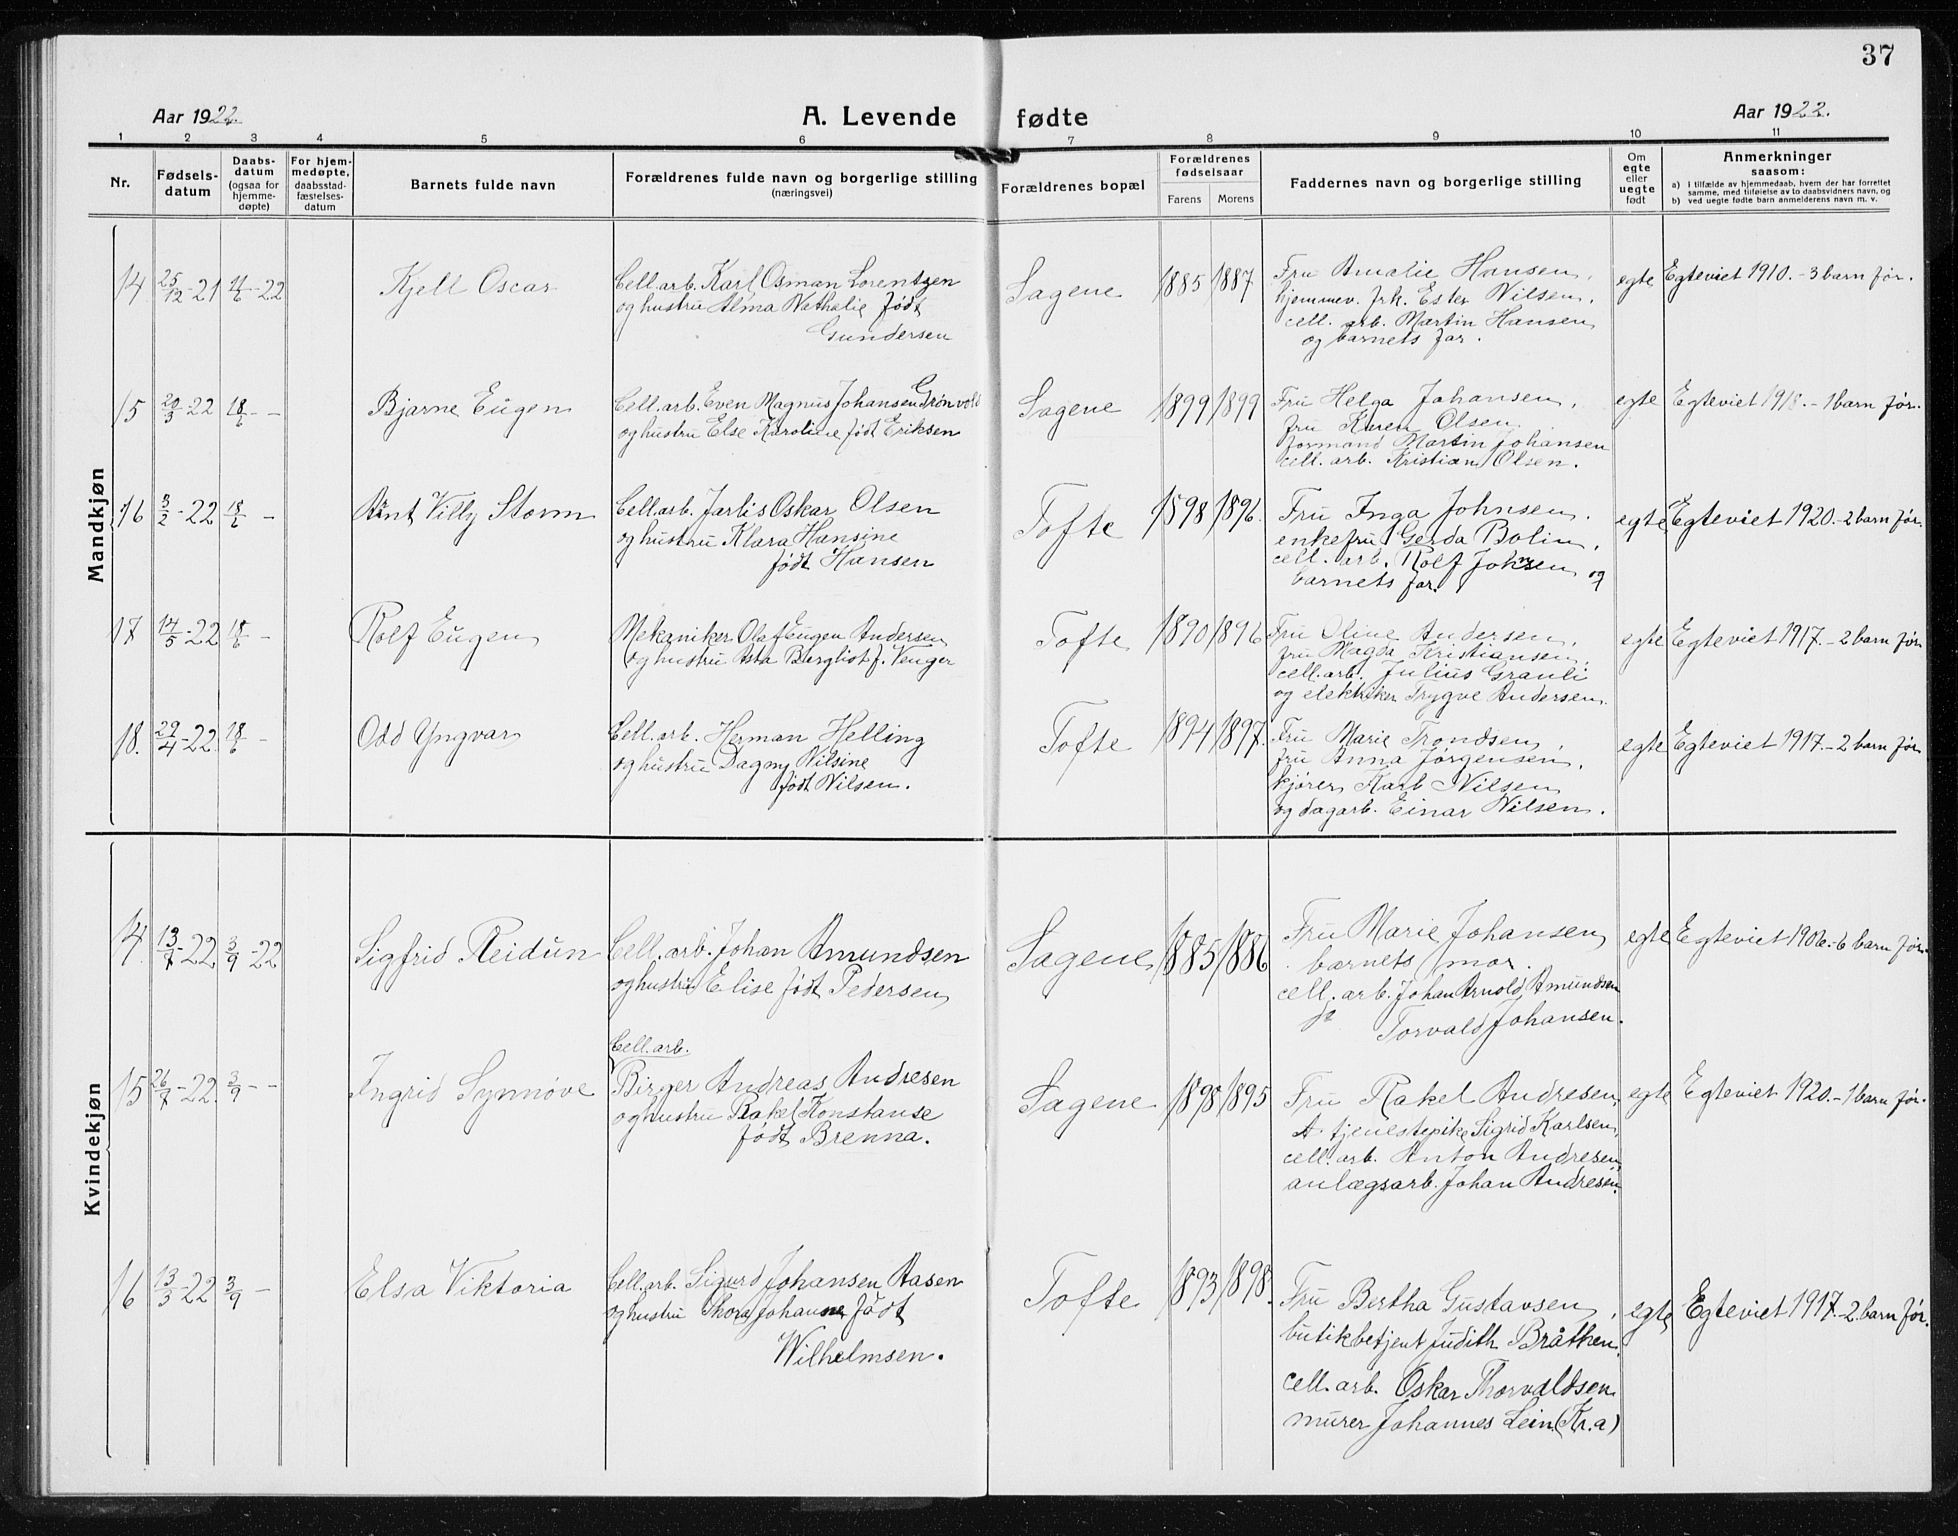 37
Aar 1922.
A. Levende fødte
Aar 1922.
1 2 3 4 5 6 7 8 9 10 11
Nr.
Fødsels-
datum
Daabs-
datum
(ogsaa for
hjemme-
døpte)
For hjem-
medøpte,
daabsstad-
fæstelses-
datum
Barnets fulde navn
Forældrenes fulde navn og borgerlige stilling
(næringsvei)
Forældrenes bopæl
Forældrenes
fødselsaar
Farens Morens
Faddernes navn og borgerlige stilling
Om
egte
eller
uegte
født
Anmerkninger
saasom:
a) i tilfælde av hjemmedaab, hvem der har forrettet
samme, med tilføielse av to daabsvidners navn, og
b) ved uegte fødte barn anmelderens navn m. v.
Mandkjøn
14 25/12-21 4/6-22 Kjell Oscar
Cell. arb. Karl Osman Lorentzen
og hustru Alma Nathalie født
Gundersen
Sagene 1885 1887
Fru Amalie Hansen,
hjemmev. frk. Ester Nilsen,
cell. arb. Martin Hansen
og barnets far.
egte Egteviet 1910. - 3 barn før.
15 20/3-22 18/6 - - Bjarne Eugen
Cell. arb. Even Magnus Johansen Grønvold
og hustru Else Karoline født Eriksen
Sagene 1899 1899
Fru Helga Johansen,
fru Karen Olsen.
formand Martin Johansen
cell. arb. Kristian Olsen.
egte Egteviet 1918. - 1 barn før.
16 3/2-22 18/6 - Arnt Villy Storm
Cell. arb. Jarlis Oskar Olsen
og hustru Klara Hansine
født Hansen
Tofte 1898 1896.
Fru Inga Johnsen.
enkefru Gerda Bolin,
cell. arb. Rolf Johnsen og
barnets far.
egte Egteviet 1920. - 2 barn før.
17 14/5-22 18/6 - Rolf Eugen
Mekaniker Olaf Eugen Andersen
og hustru Asta Bergliot f. Venger
Tofte 1890 1896
Fru Oline Andersen,
fru Magda Kristiansen,
cell. arb. Julius Grauli
og elektriker Trygve Andersen.
egte Egteviet 1917. - 2 barn før
18. 29/4-22 18/6 - Odd Yngvar
Cell. arb. Herman Helling
og hustru Dagny Nilsine
født Nilsen.
Tofte 1894 1897.
Fru Marie Trondsen,
fru Anna Jørgensen,
kjører Karl Nilsen
og dagarb. Einar Nilsen.
egte Egteviet 1917. - 2 barn før
Kvindekjøn
14. 13/7-22 3/9-22 Sigfrid Reidun
Cell. arb. Johan Amundsen
og hustru Elise født Pedersen,
Sagene 1885 1886
Fru Marie Johansen,
barnets mor.
cell. arb. Johan Arnold Amundsen
do Torvald Johansen.
egte Egteviet 1906. - 6 barn før.
15 26/7-22. 3/9 - - Ingrid Synnøve
Cell. arb.
Birger Andreas Andresen
og hustru Rakel Konstanse
født Brenna.
Sagene 1898 1895
Fru Rakel Andresen,
tjenestepike Sigrid Karlsen,
cell. arb. Anton Andresen,
anlægsarb. Johan Andresen.
egte Egteviet 1920. - 1 barn før.
16 13/3-22 3/9 - Elsa Viktoria
Cell. arb. Sigurd Johansen Aasen
og hustru Thora Johanne født
Wilhelmsen.
Tofte 1893 1898.
Fru Bertha Gustavsen,
butikbetjent Judith Bråthen.
cell. arb. Oskar Thorvaldsen
murer Johannes Lein (Kr.a)
egte Egteviet 1917. - 2 barn før.